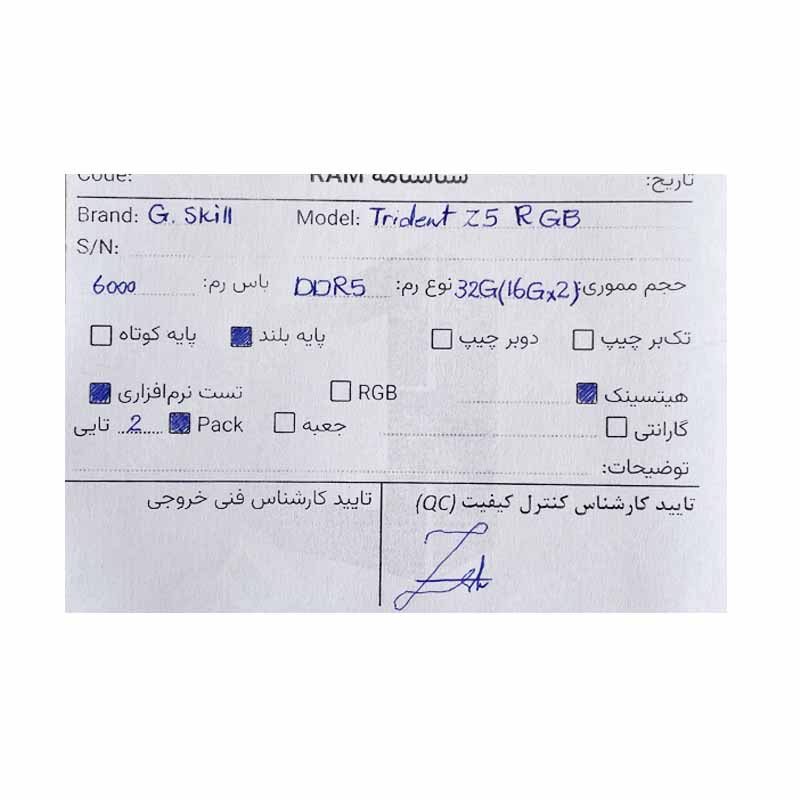 Code: شناسنامه RAM تاریخ:
Brand: G. Skill Model: Trident Z5 RGB
S/N:
حجم مموری: 32G(16G×2) نوع رم: DDR5 باس رم: 6000
تک‌بر چیپ دوبر چیپ پایه بلند پایه کوتاه
هیتسینک RGB تست نرم‌افزاری
گارانتی جعبه Pack 2 تایی
توضیحات:
تایید کارشناس کنترل کیفیت (QC) تایید کارشناس فنی خروجی